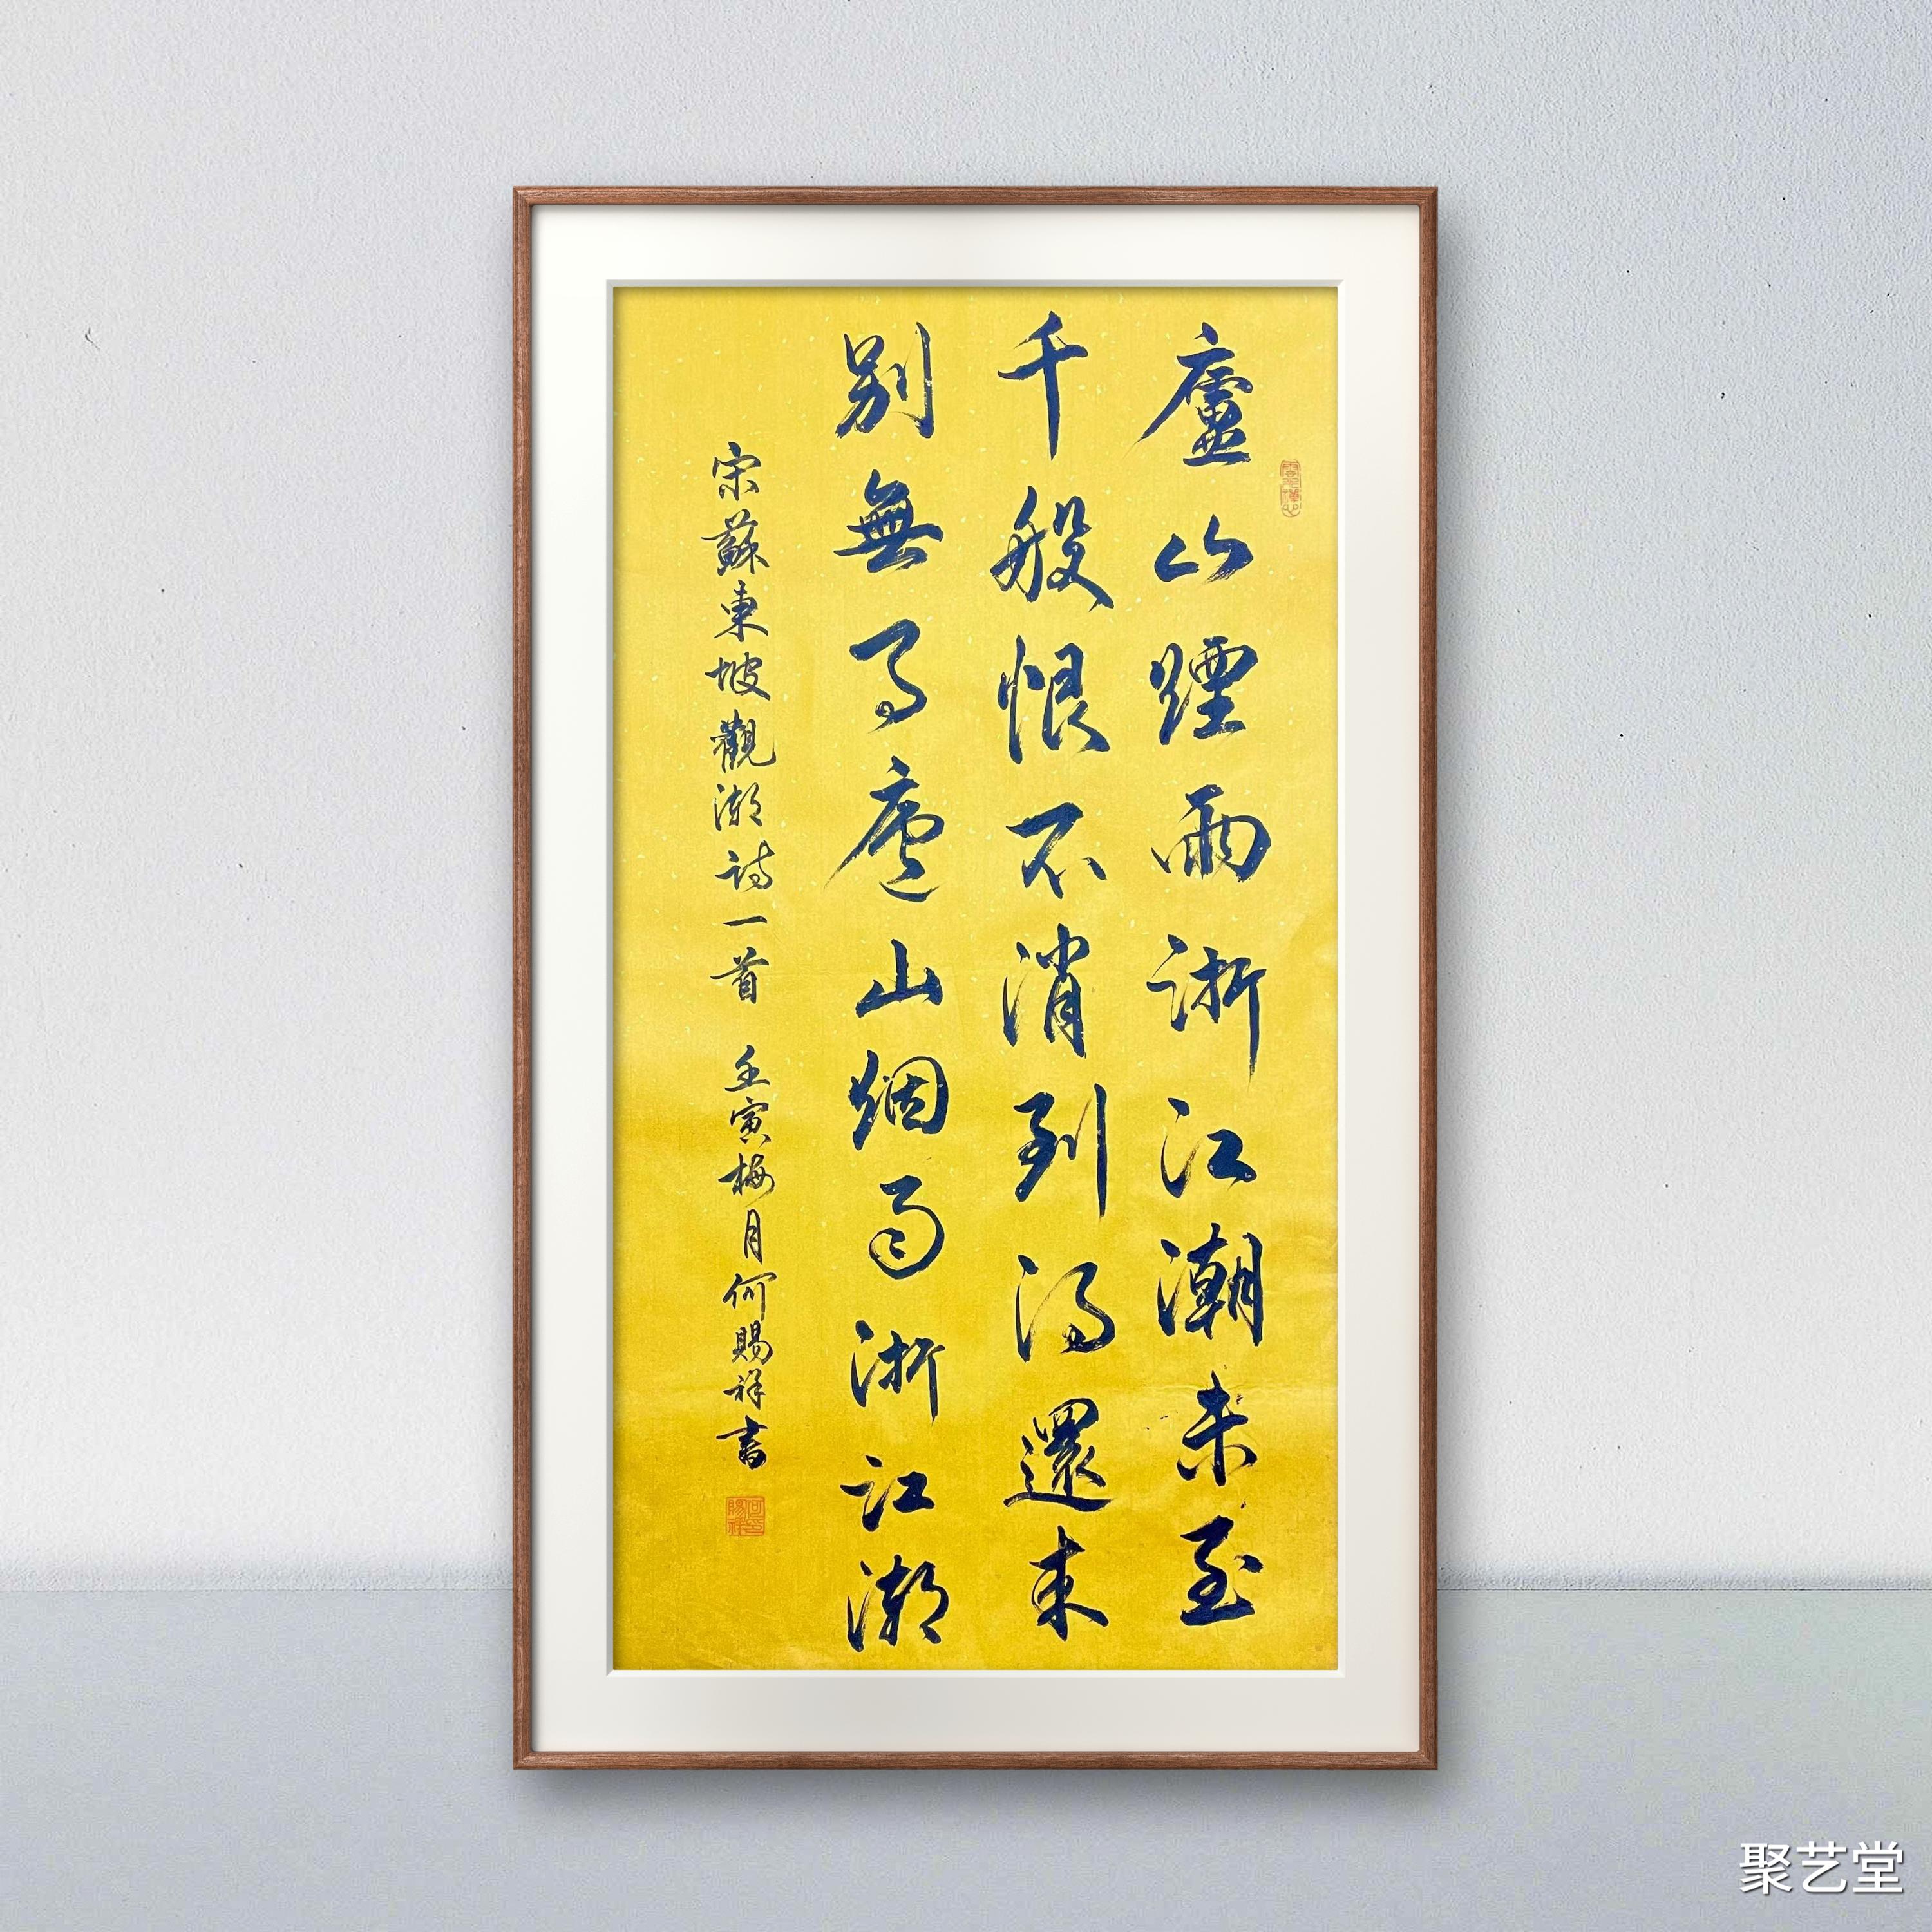 廬山煙雨浙江潮未至
千般恨不消到得還来
别無事廬山烟雨浙江潮
宋蘇東坡觀潮詩一首 壬寅梅月何賜祥書
何賜祥
聚艺堂